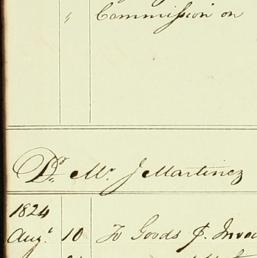 " Commission on
Dr. Mr. J Martinez
1824
Augt 10 To Goods p. Invoi